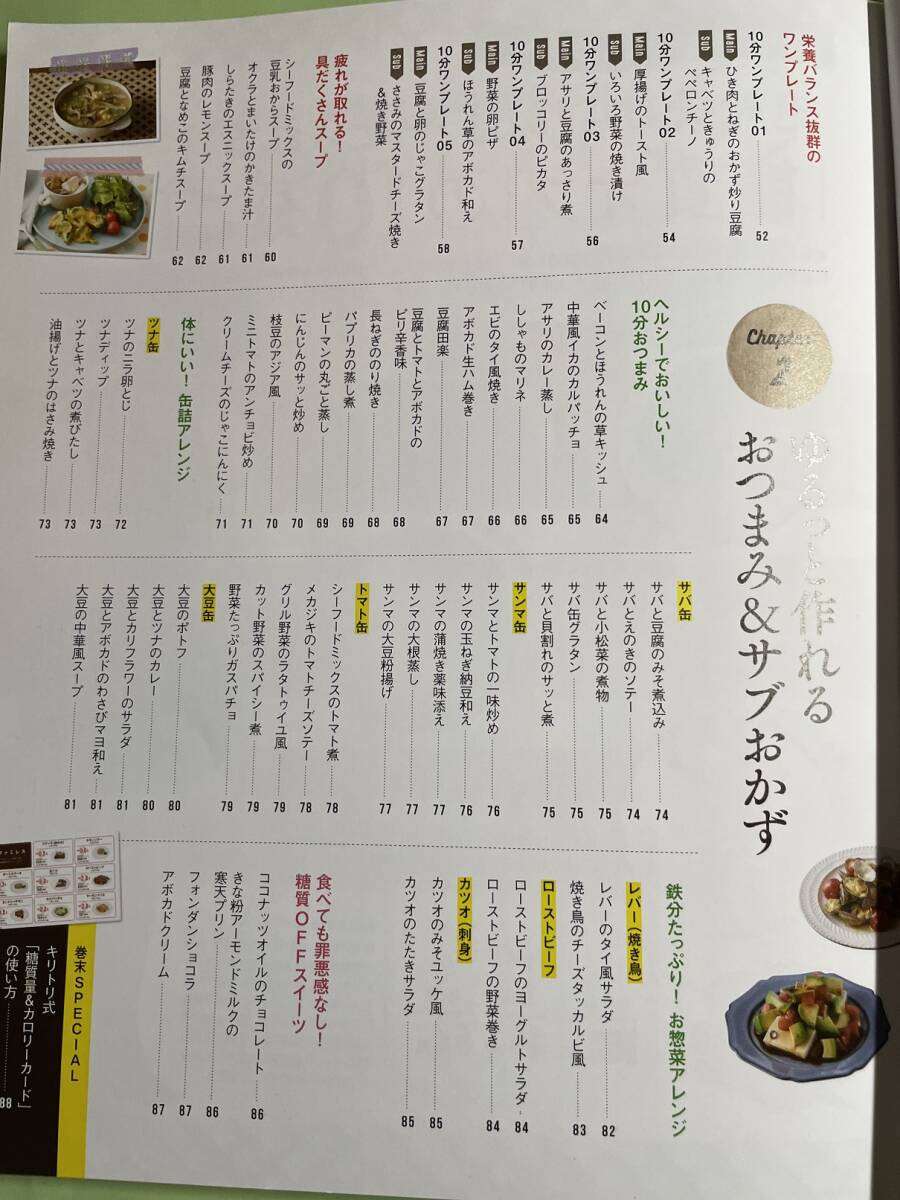 栄養バランス抜群の
ワンプレート
10分ワンプレート01……52
Main ひき肉とねぎのおかず炒り豆腐
Sub キャベツときゅうりの
ペペロンチーノ
10分ワンプレート02……54
Main 厚揚げのトースト風
Sub いろいろ野菜の焼き漬け
10分ワンプレート03……56
Main アサリと豆腐のあっさり煮
Sub ブロッコリーのピカタ
10分ワンプレート04……57
Main 野菜の卵ピザ
Sub ほうれん草のアボカド和え
10分ワンプレート05……58
Main 豆腐と卵のじゃこグラタン
Sub ささみのマスタードチーズ焼き
&焼き野菜
疲れが取れる!
具だくさんスープ
シーフードミックスの
豆乳おからスープ……60
オクラとまいたけのかきたま汁……61
しらたきのエスニックスープ……61
豚肉のレモンスープ……62
豆腐となめこのキムチスープ……62
Chapter
2
ゆるっと作れる
おつまみ&サブおかず
ヘルシーでおいしい!
10分おつまみ
ベーコンとほうれんの草キッシュ……64
中華風イカのカルパッチョ……65
アサリのカレー蒸し……65
ししゃものマリネ……66
エビのタイ風焼き……66
アボカド生ハム巻き……67
豆腐田楽……67
豆腐とトマトとアボカドの
ピリ辛香味……68
長ねぎののり焼き……68
パプリカの蒸し煮……69
ピーマンの丸ごと蒸し……69
にんじんのサッと炒め……70
枝豆のアジア風……70
ミニトマトのアンチョビ炒め……71
クリームチーズのじゃこにんにく……71
体にいい!缶詰アレンジ
ツナ缶
ツナのニラ卵とじ……72
ツナディップ……73
ツナとキャベツの煮びたし……73
油揚げとツナのはさみ焼き……73
サバ缶
サバと豆腐のみそ煮込み……74
サバとえのきのソテー……74
サバと小松菜の煮物……75
サバ缶グラタン……75
サバと貝割れのサッと煮……75
サンマ缶
サンマとトマトの一味炒め……76
サンマの玉ねぎ納豆和え……76
サンマの蒲焼き薬味添え……77
サンマの大根蒸し……77
サンマの大豆粉揚げ……77
トマト缶
シーフードミックスのトマト煮……78
メカジキのトマトチーズソテー……78
グリル野菜のラタトゥイユ風……79
カット野菜のスパイシー煮……79
野菜たっぷりガスパチョ……79
大豆缶
大豆のポトフ……80
大豆とツナのカレー……80
大豆とカリフラワーのサラダ……81
大豆とアボカドのわさびマヨ和え……81
大豆の中華風スープ……81
鉄分たっぷり!お惣菜アレンジ
レバー(焼き鳥)
レバーのタイ風サラダ……82
焼き鳥のチーズタッカルビ風……83
ローストビーフ
ローストビーフのヨーグルトサラダ…84
ローストビーフの野菜巻き……84
カツオ(刺身)
カツオのみそユッケ風……85
カツオのたたきサラダ……85
食べても罪悪感なし!
糖質OFFスイーツ
ココナッツオイルのチョコレート……86
きな粉アーモンドミルクの
寒天プリン……86
フォンダンショコラ……87
アボカドクリーム……87
巻末SPECIAL
キリトリ式
「糖質量&カロリーカード」
の使い方……88
ファミレス